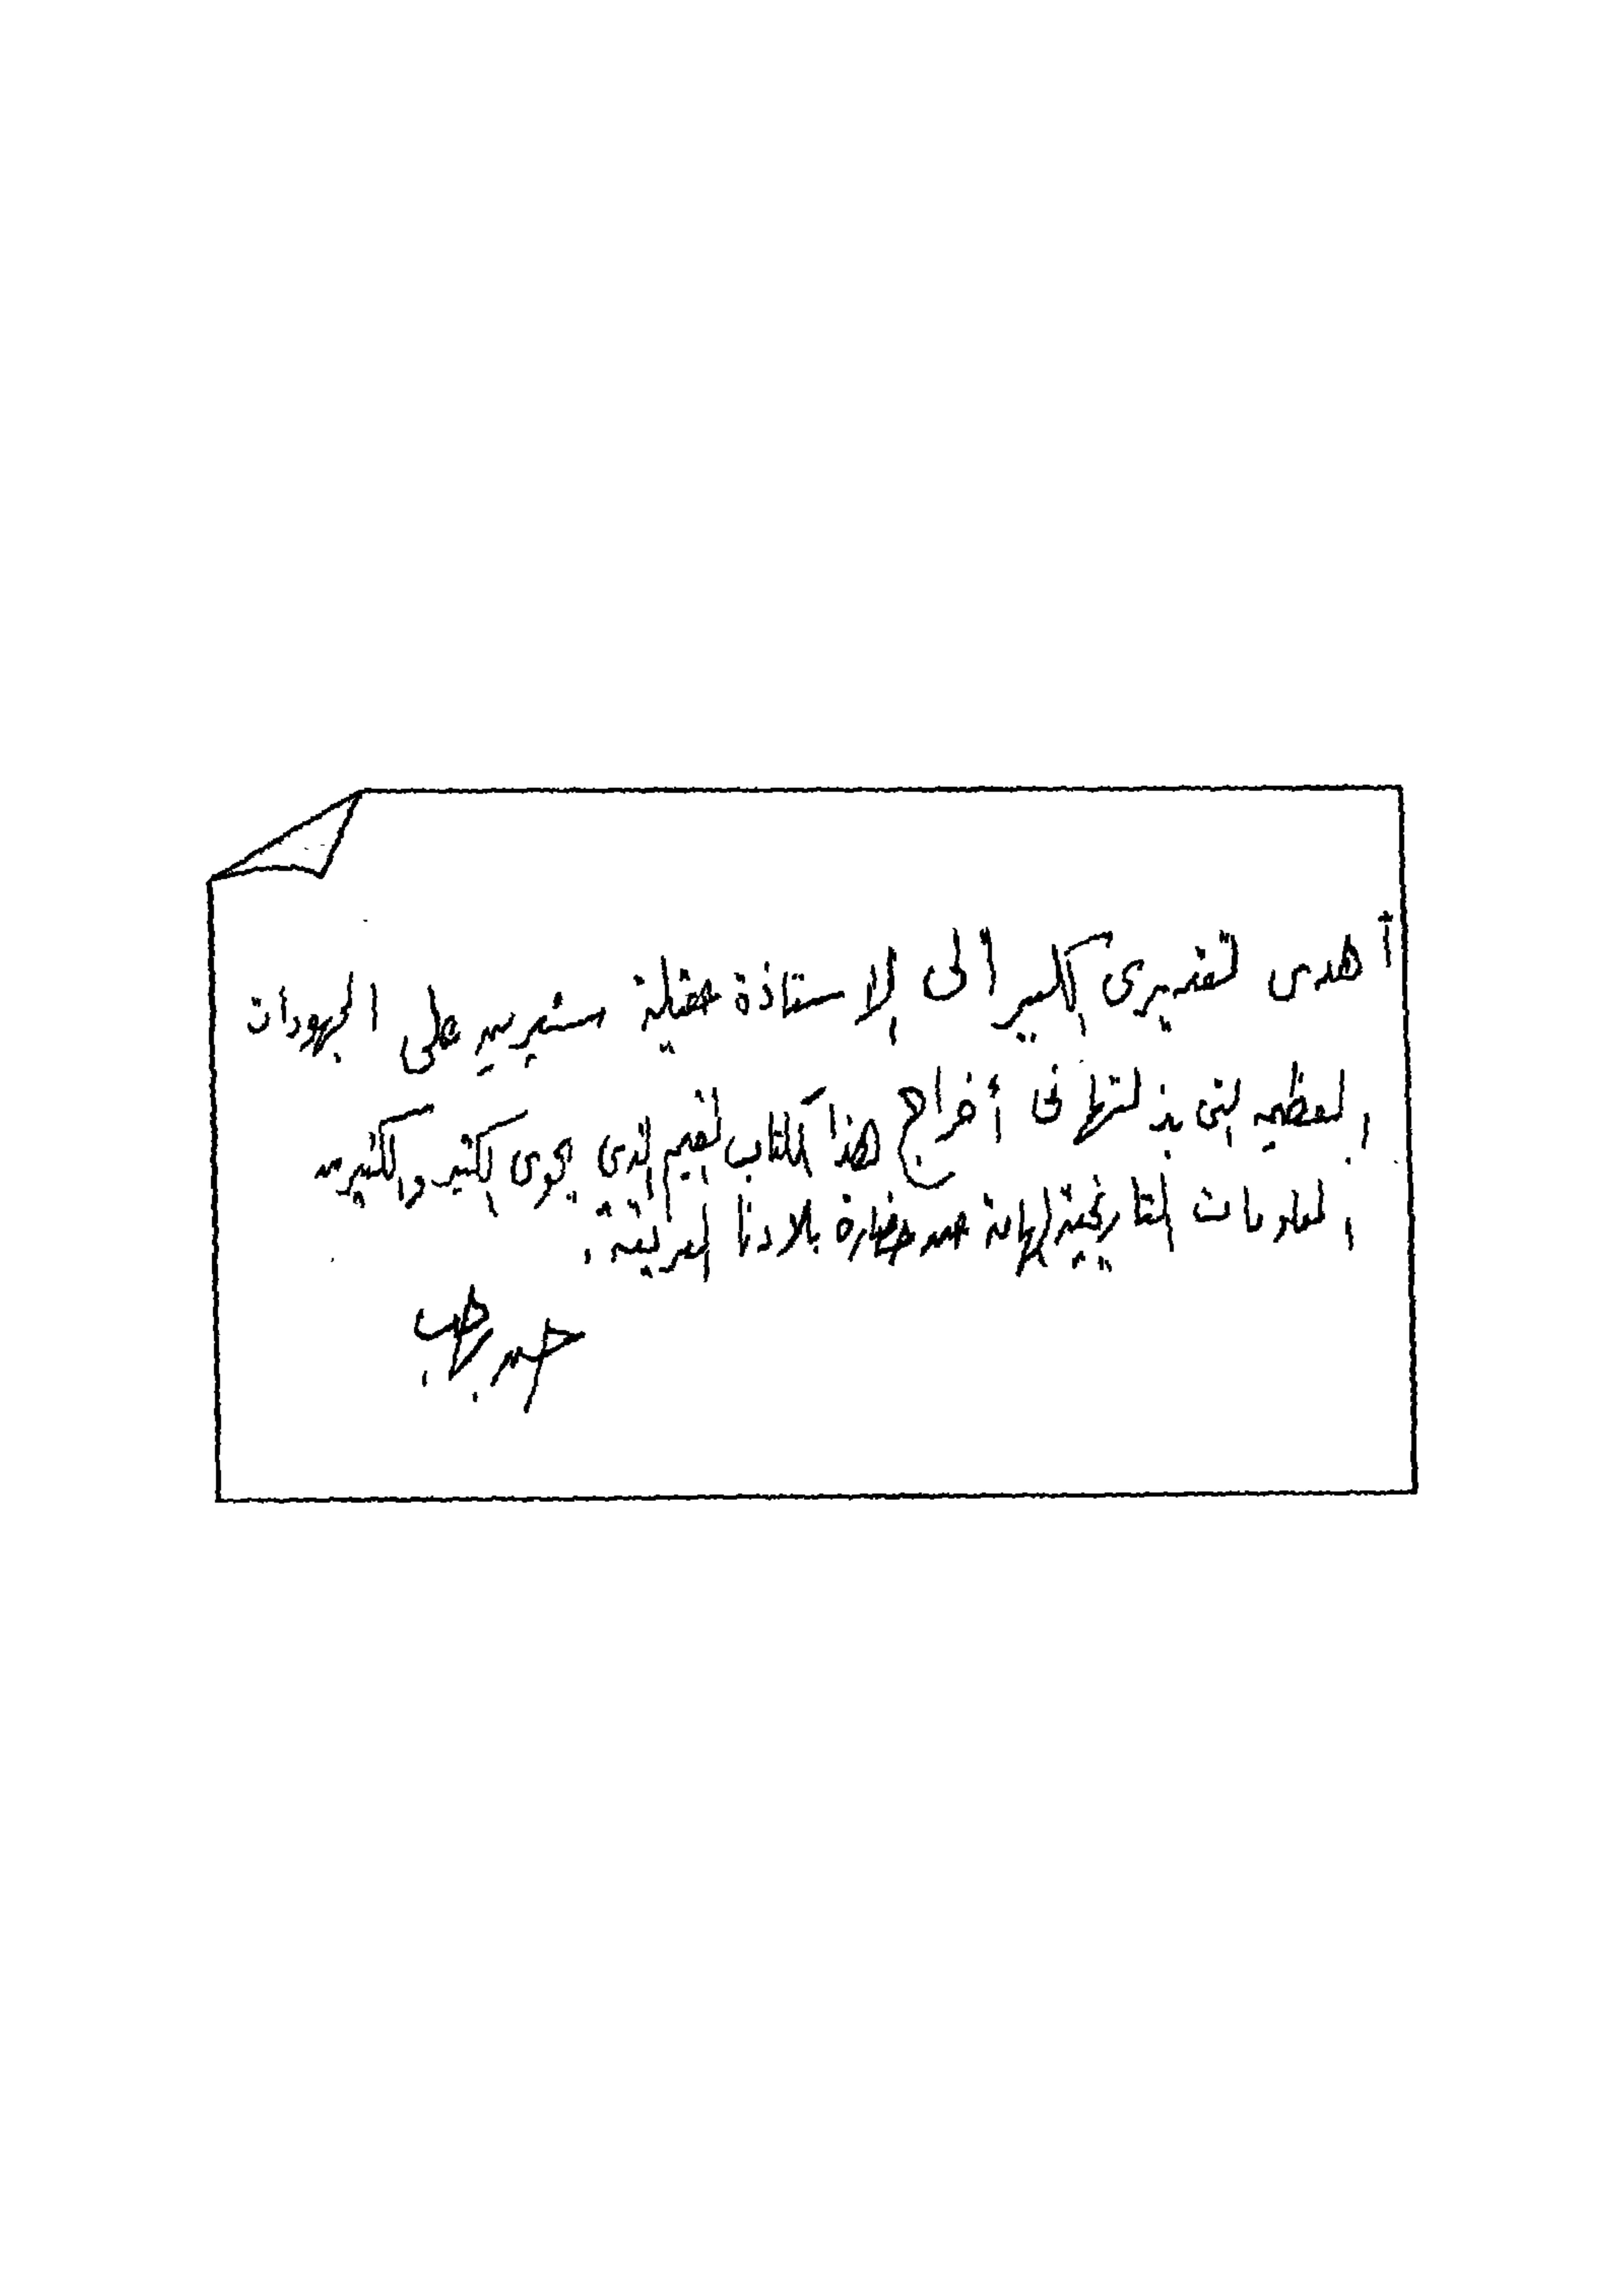 أهدى تقديرى الكبير الى الاستاذة عقيلة شيرين على المجهودات
العظيمه التى بذلتها فى أخراج هذا الكتاب القيم الذى يحوى الكثير والكثير من
المعلومات التاريخية الهامة عن حضارة بلادنا العريقة.